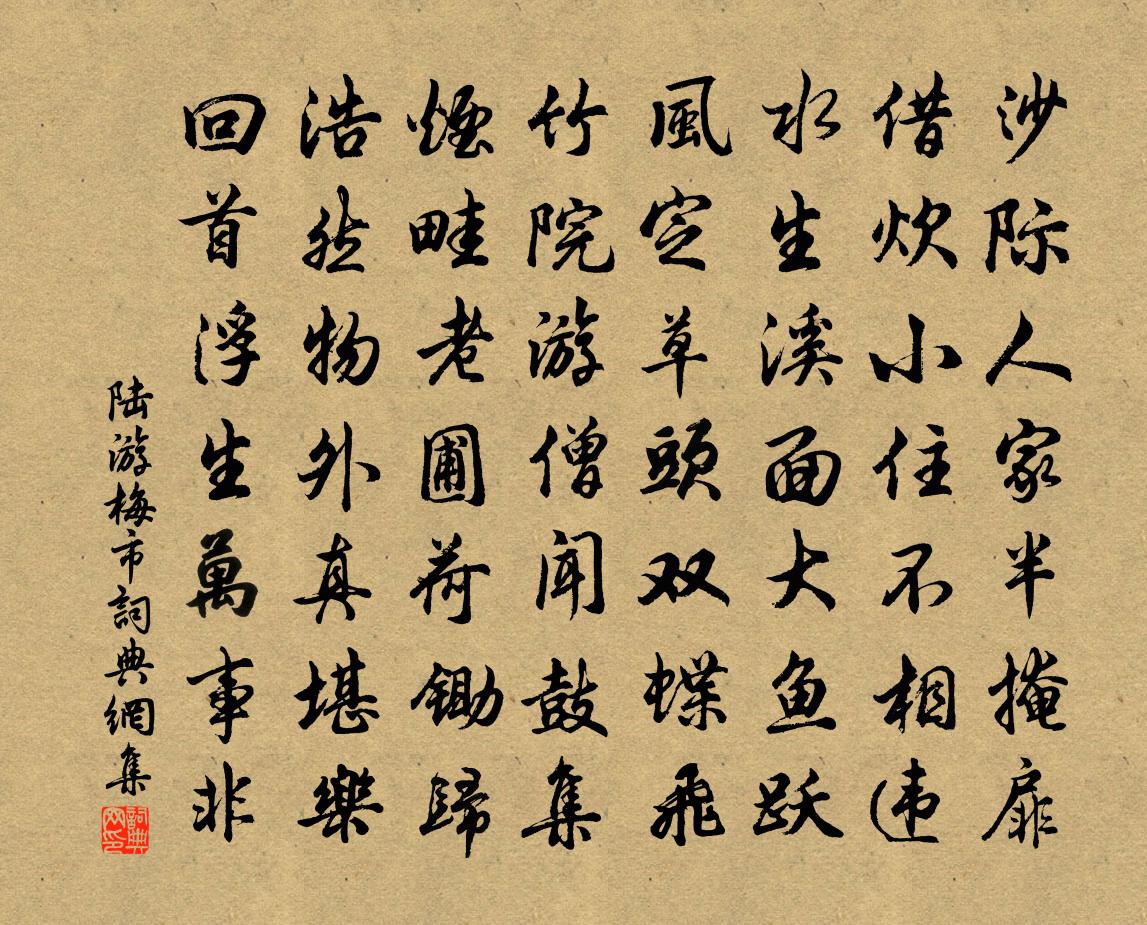 沙际人家半掩扉
借炊小住不相违
水生溪面大鱼跃
風定草頭双蝶飛
竹院游僧闻鼓集
煙畦老圃荷锄歸
浩然物外真堪樂
回首浮生萬事非
陆游梅市詞典網集
詞典网印